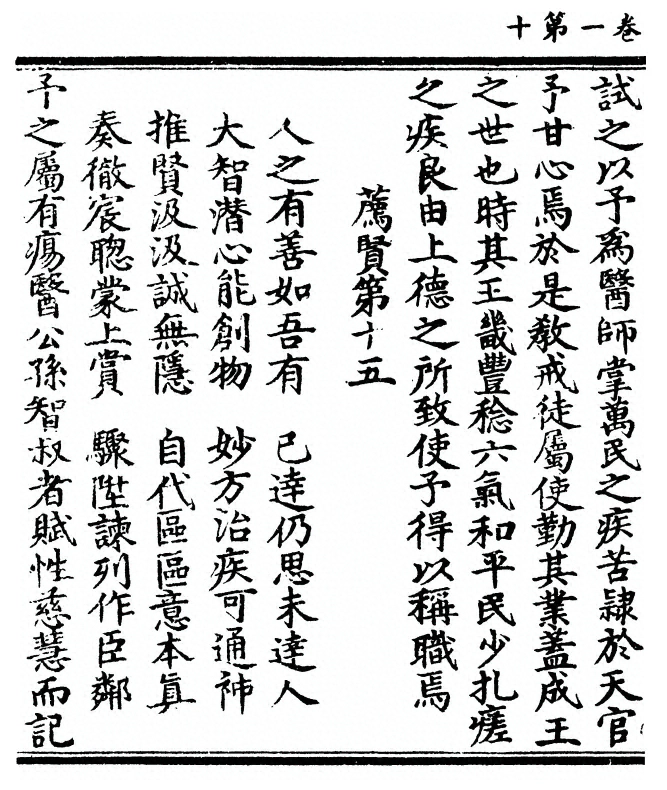 卷一第十
試之以予爲醫師掌萬民之疾苦隷於天官
予甘心焉於是敎戒徒屬使勤其業蓋成王
之世也時其王畿豐稔六氣和平民少扎瘥
之疾良由上德之所致使予得以稱職焉
薦賢第十五
人之有善如吾有　已達仍思未達人
大智潜心能創物　妙方治疾可通神
推賢汲汲誠無隱　自代區區意本眞
奏徹宸聰蒙上賞　驟陞諫列作臣鄰
予之屬有瘍醫公孫智叔者賦性慈慧而記